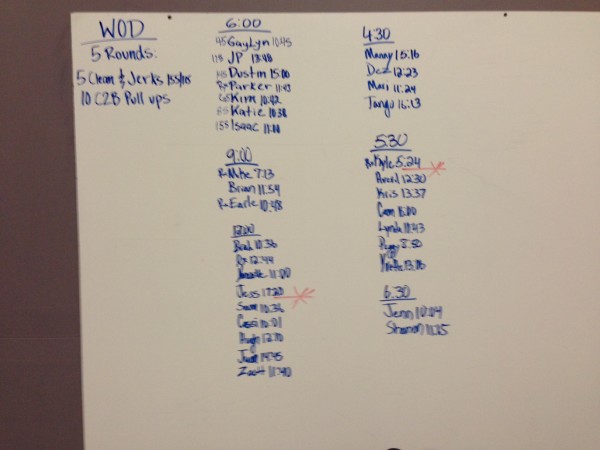 WOD
5 Rounds:
5 Clean & Jerks 155/115
10 C2B Pull ups
6:00
45 GayLyn 10:45
115 JP 13:48
Dustin 15:00
Rx Parker 11:43
65 Kim 10:42
Katie 10:38
155 Isaac 11:00
9:00
Rx Mike 7:13
Brian 11:54
Rx Earle 10:48
12:00
Brad 10:36
12:44
11:00
Jess 17:20
Sam 10:36
Cassi 10:01
Hugh 12:10
14:45
Zach 11:40
4:30
Manny 15:16
Dez 12:23
Mari 11:24
Tango 16:13
5:30
Rx Kyle 5:24
12:30
Kris 13:37
Cam 15:00
Lynda 11:43
8:50
Yvette
6:30
Jenn 10:04
Sharon